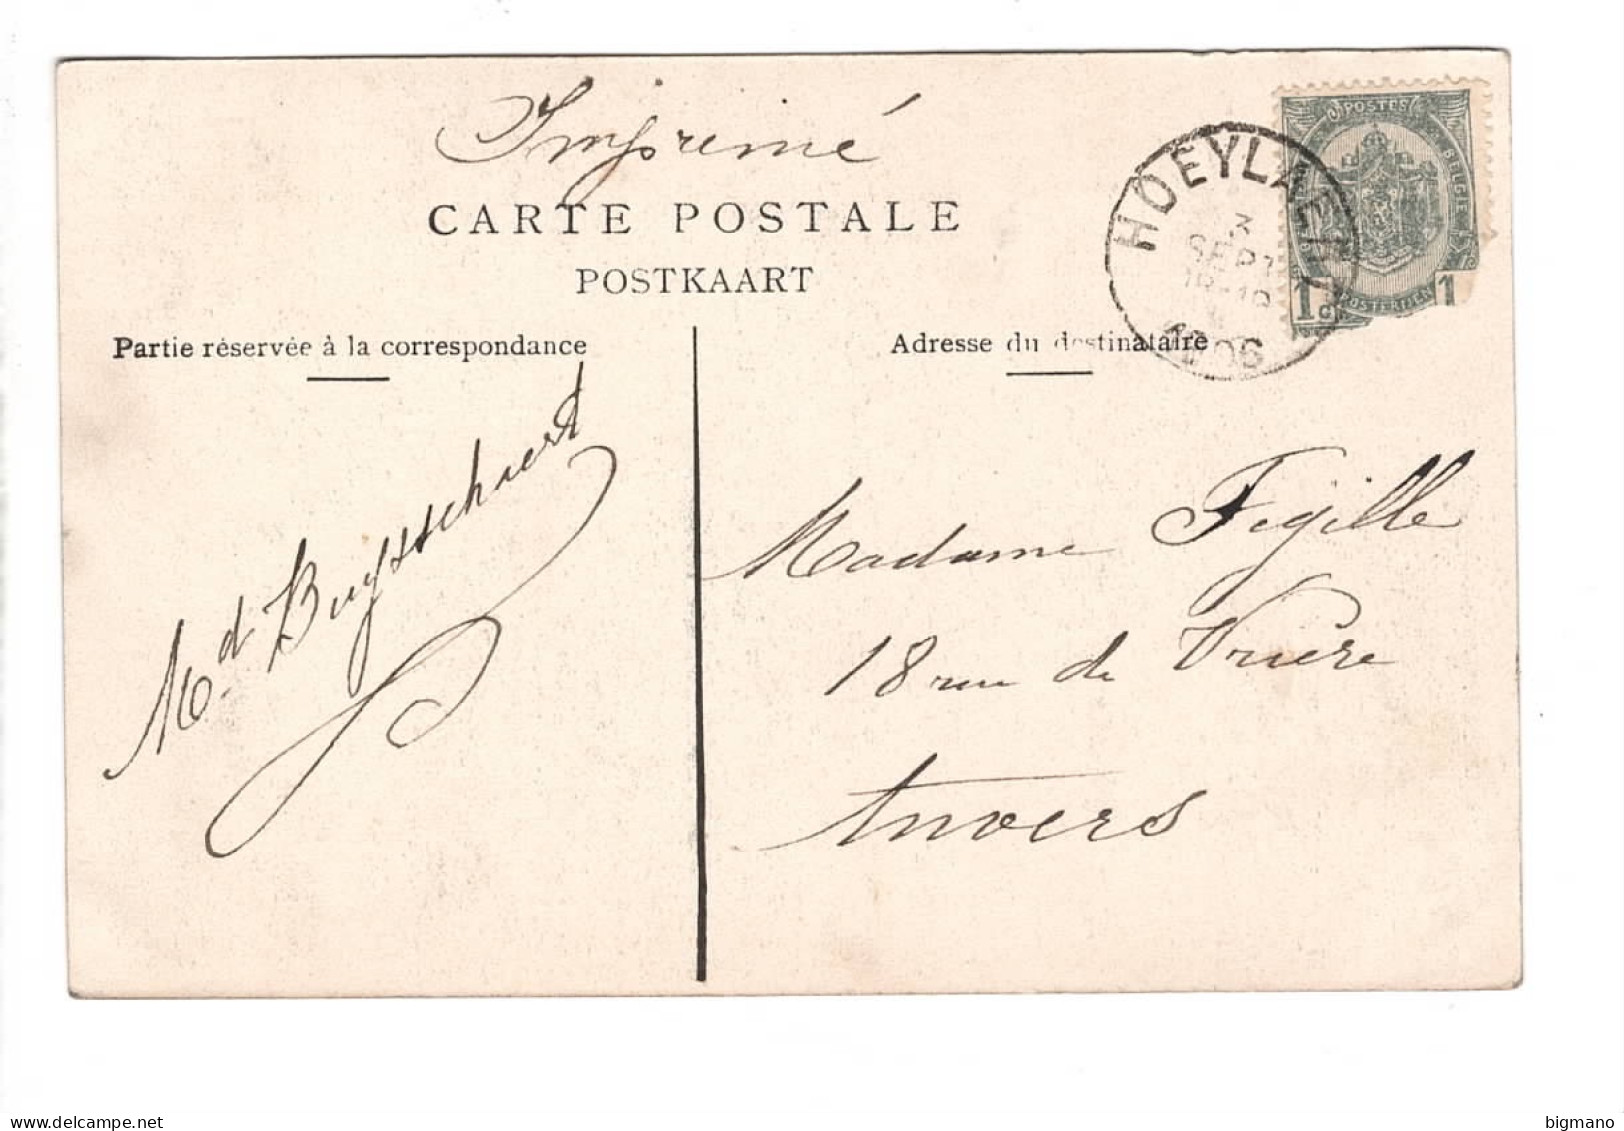 Imprimé
CARTE POSTALE
POSTKAART
POSTES
BELGIE
POSTERIJEN
1c 1
HOEYLAERT
3
SEPT
1906
Partie réservée à la correspondance
Adresse du destinataire
Md Buysschaert
Madame Figille
18 rue de Vrière
Anvers
www.delcampe.net
bigmano